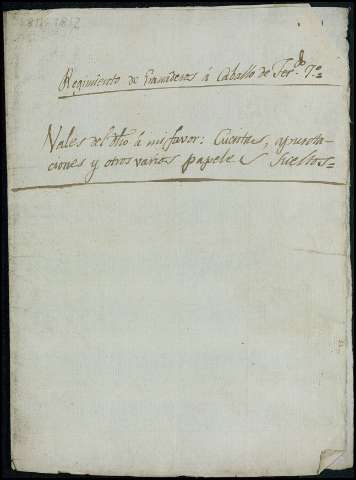 1811-1812
Regimiento de Granaderos á Caballo de Fer.do 7.o=
Vales del dho á mi favor: Cuentas, apunta-
ciones y otros varios papeles Sueltos=